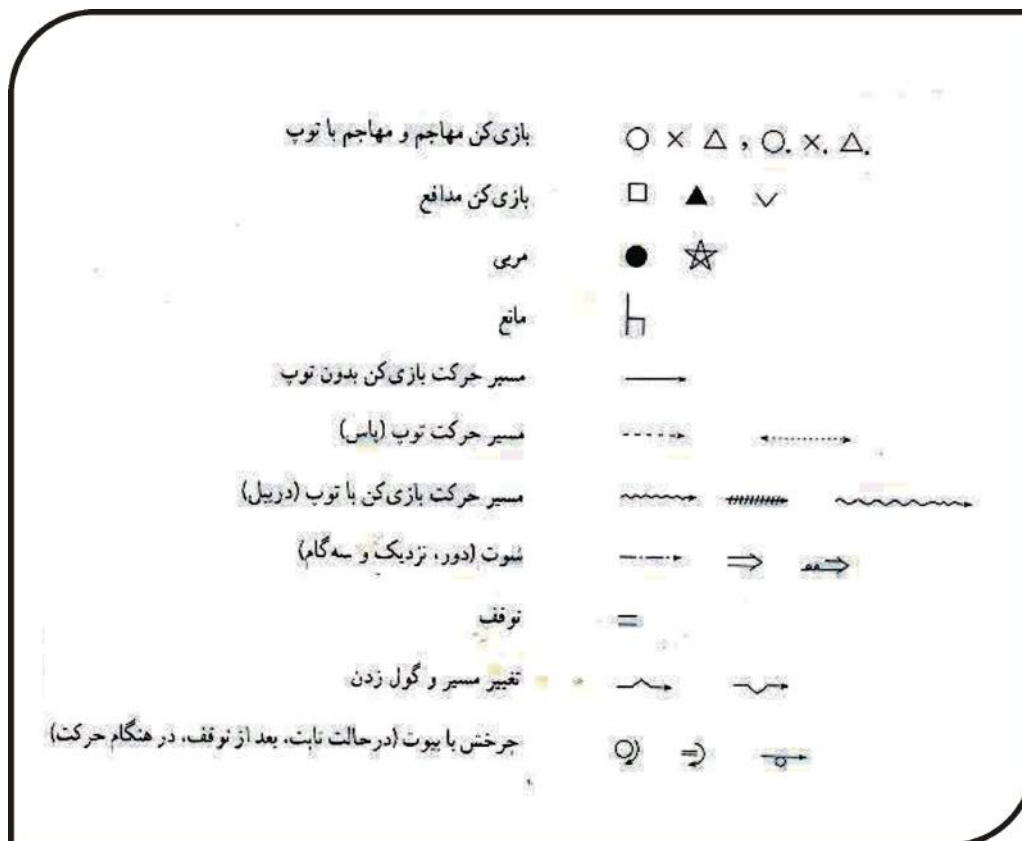 بازی‌کن مهاجم و مهاجم با توپ
بازی‌کن مدافع
مربی
مانع
مسیر حرکت بازی‌کن بدون توپ
مسیر حرکت توپ (پاس)
مسیر حرکت بازی‌کن با توپ (دریبل)
شوت (دور، نزدیک و سه‌گام)
توقف
تغییر مسیر و گول زدن
چرخش یا پیوت (در حالت ثابت، بعد از توقف، در هنگام حرکت)